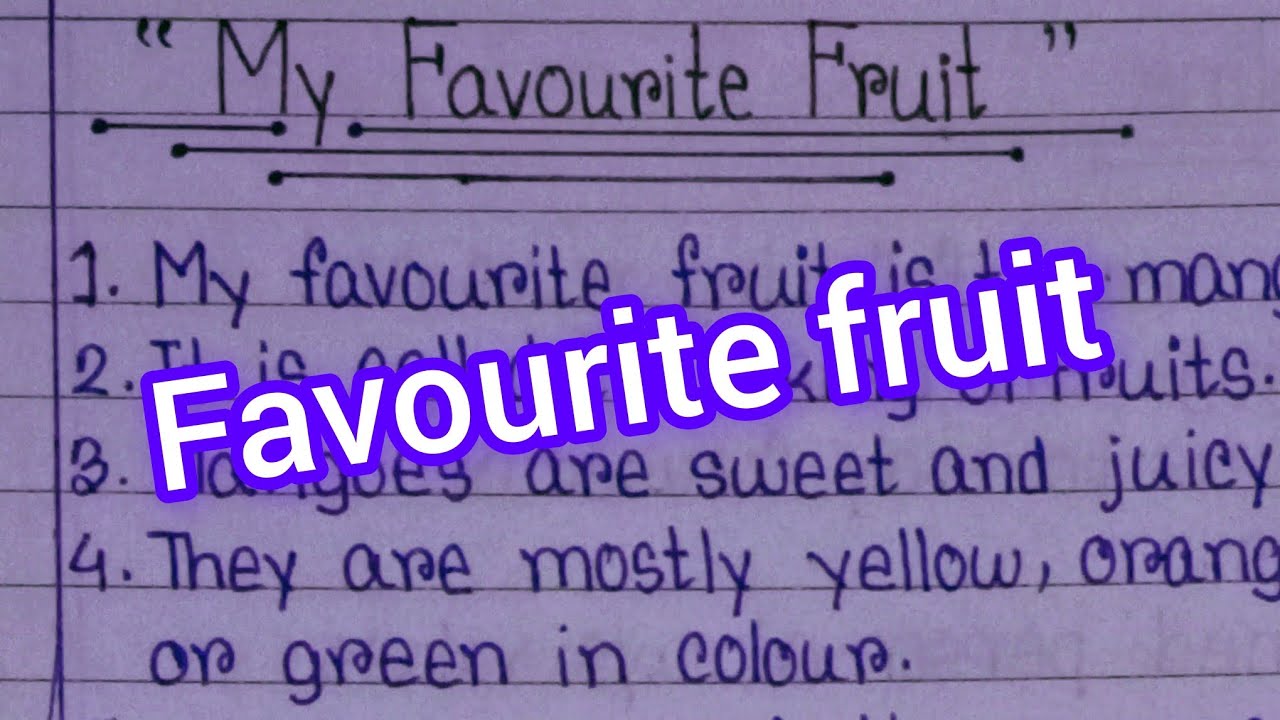 “ My Favourite Fruit ”
1. My favourite fruit is mang
Favourite fruit
2. It is king of fruits.
3. Mangoes are sweet and juicy
4. They are mostly yellow, orang
or green in colour.